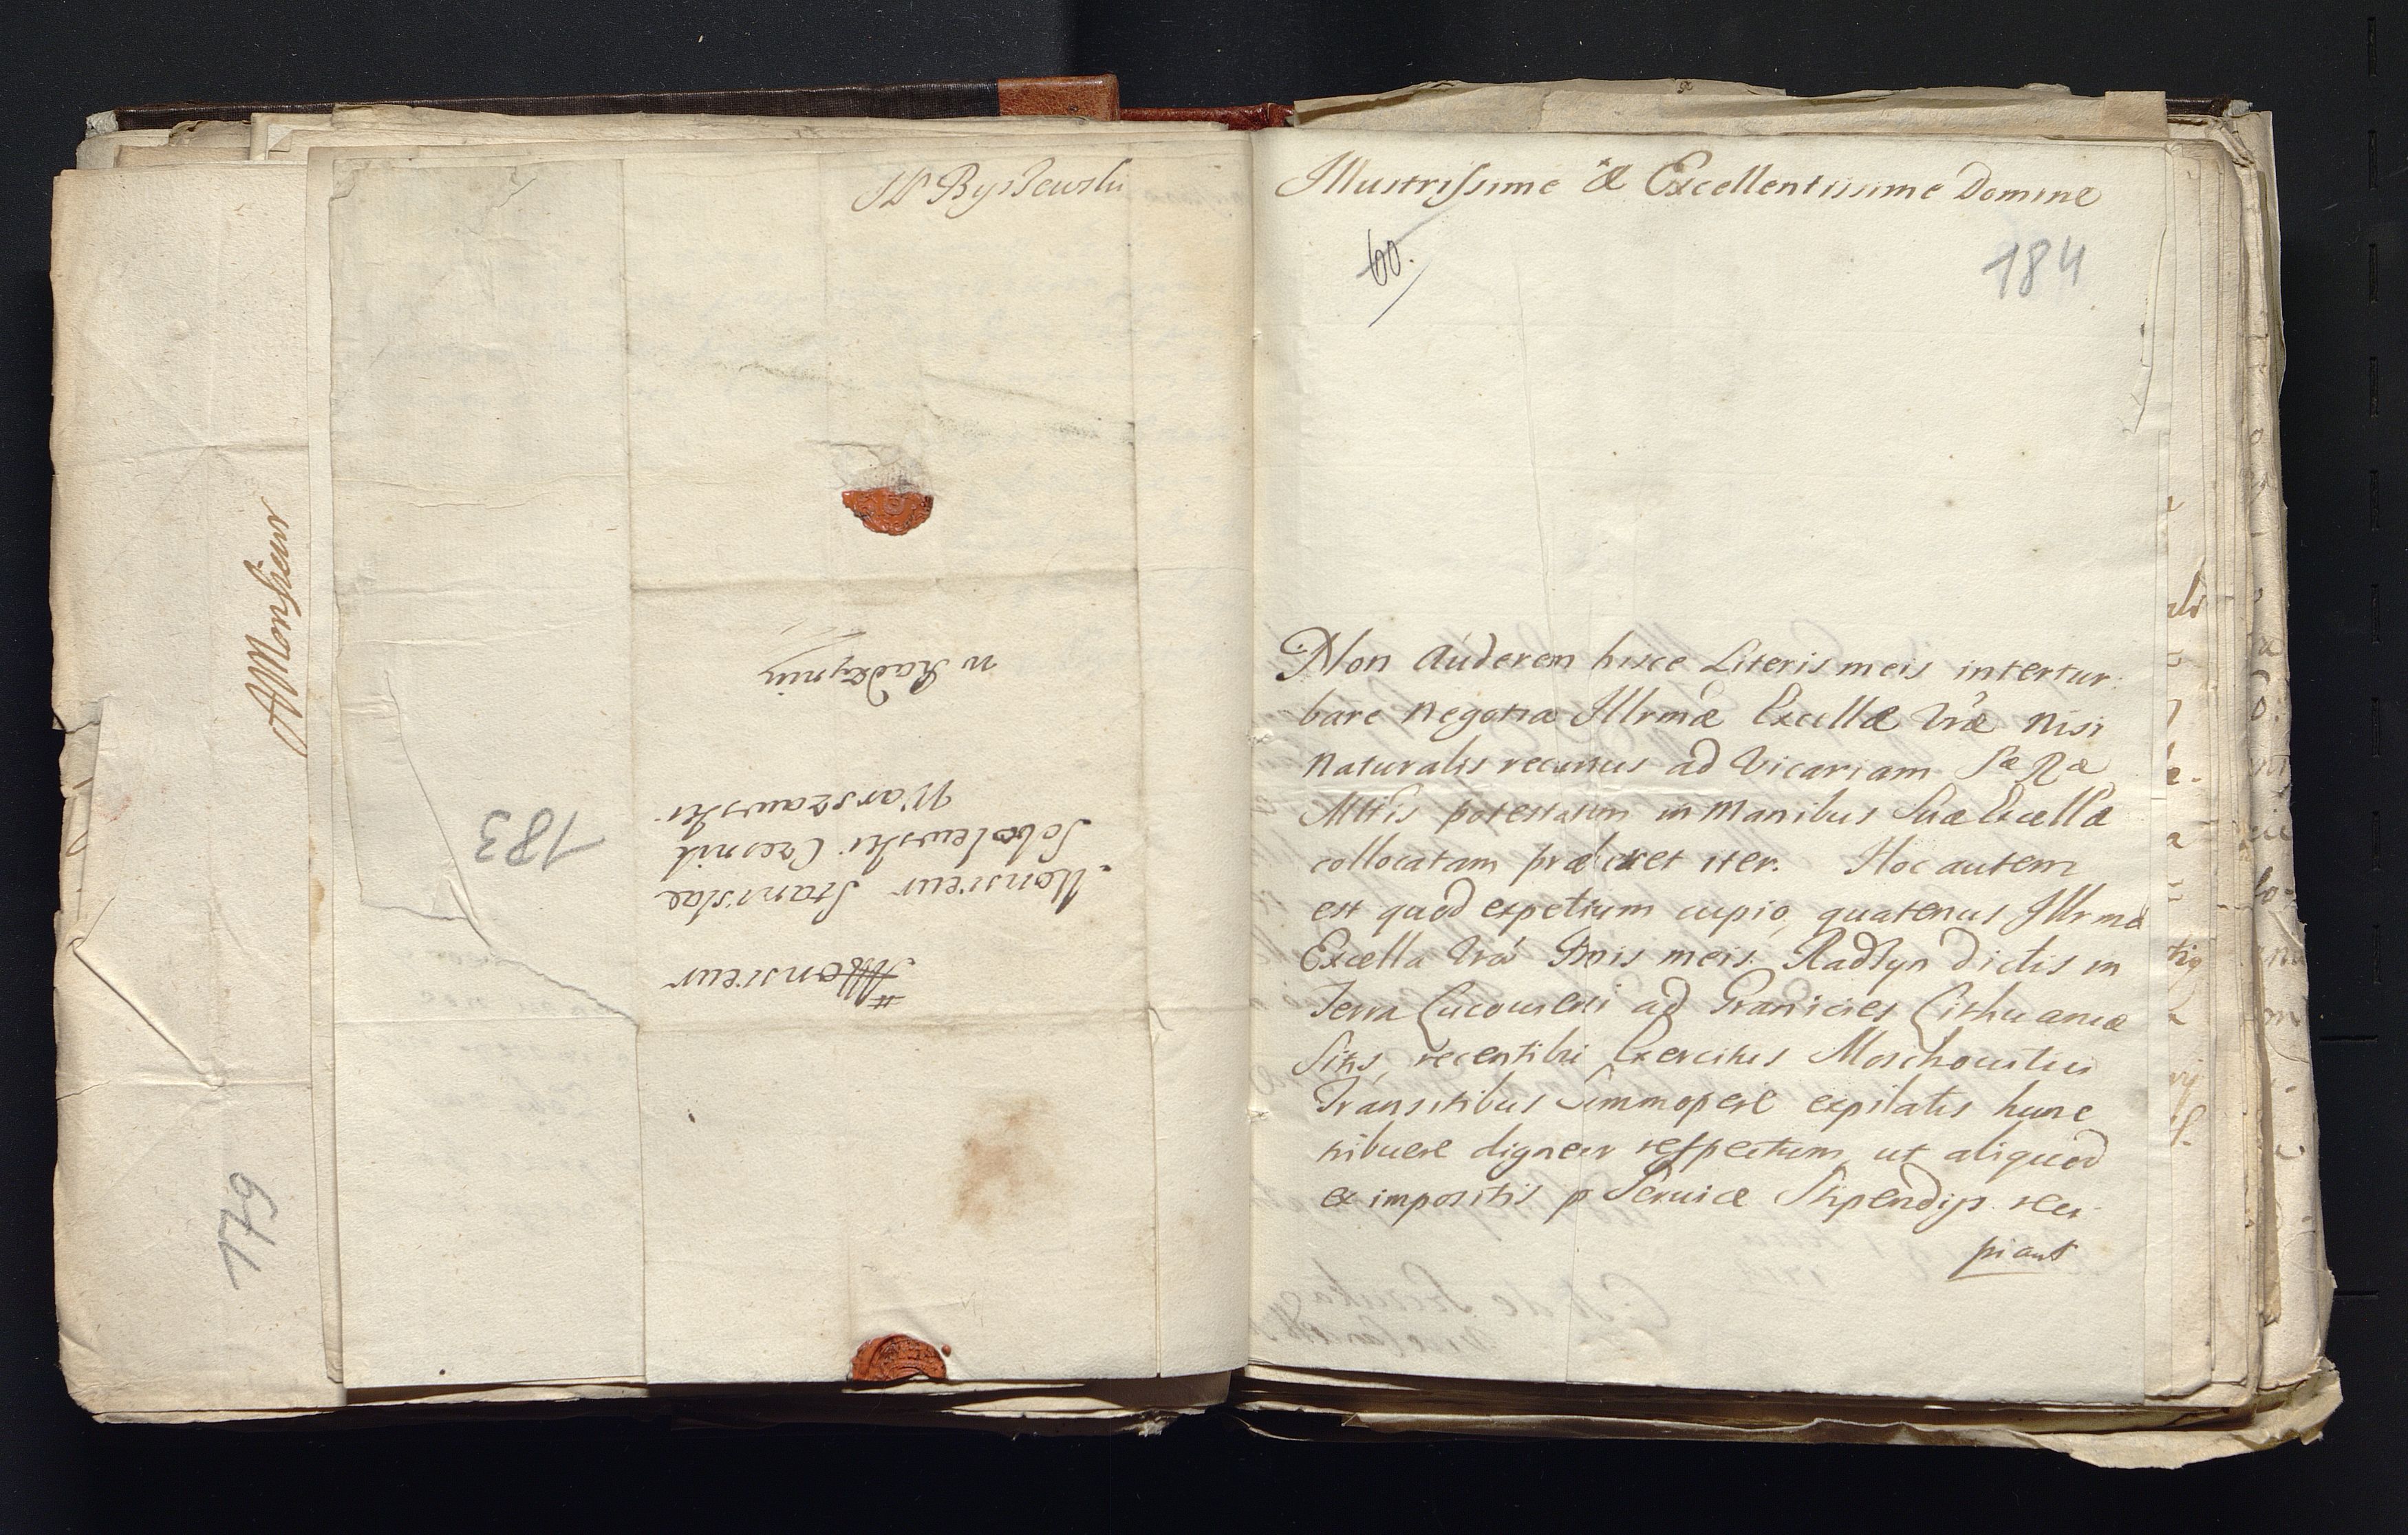 AMonsieur
179
JP Byszewski
A Monsieur
Monsieur Stanislae
Sobolewski Czesnik
Warszawski
w Radzyniu
183
Illustrissime & Excellentissime Domine
60.
184
Non auderem hisce Literis meis intertur:
bare negotia Illrmæ Excellæ Vræ nisi
naturalis recursus ad Vicariam Sæ Ræ
Mttis potestatem in manibus Suæ Excellæ
collocatam præberet iter. Hoc autem
est quod expetitum cupio, quatenus Illrma
Excella Vra Bonis meis Radzyn dictis in
Terra Lucoviensi ad Granicies Lithuaniæ
Sitis, recentibus Exercitus Moschovitici
Transitibus summopere expilatis hunc
tribuere dignetur respectum, ut aliquod
ex impositis p Service Stipendijs reci
piant